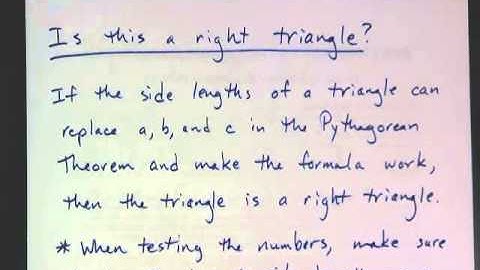 Is this a right triangle?
If the side lengths of a triangle can
replace a, b, and c in the Pythagorean
Theorem and make the formula work,
then the triangle is a right triangle.
* When testing the numbers, make sure